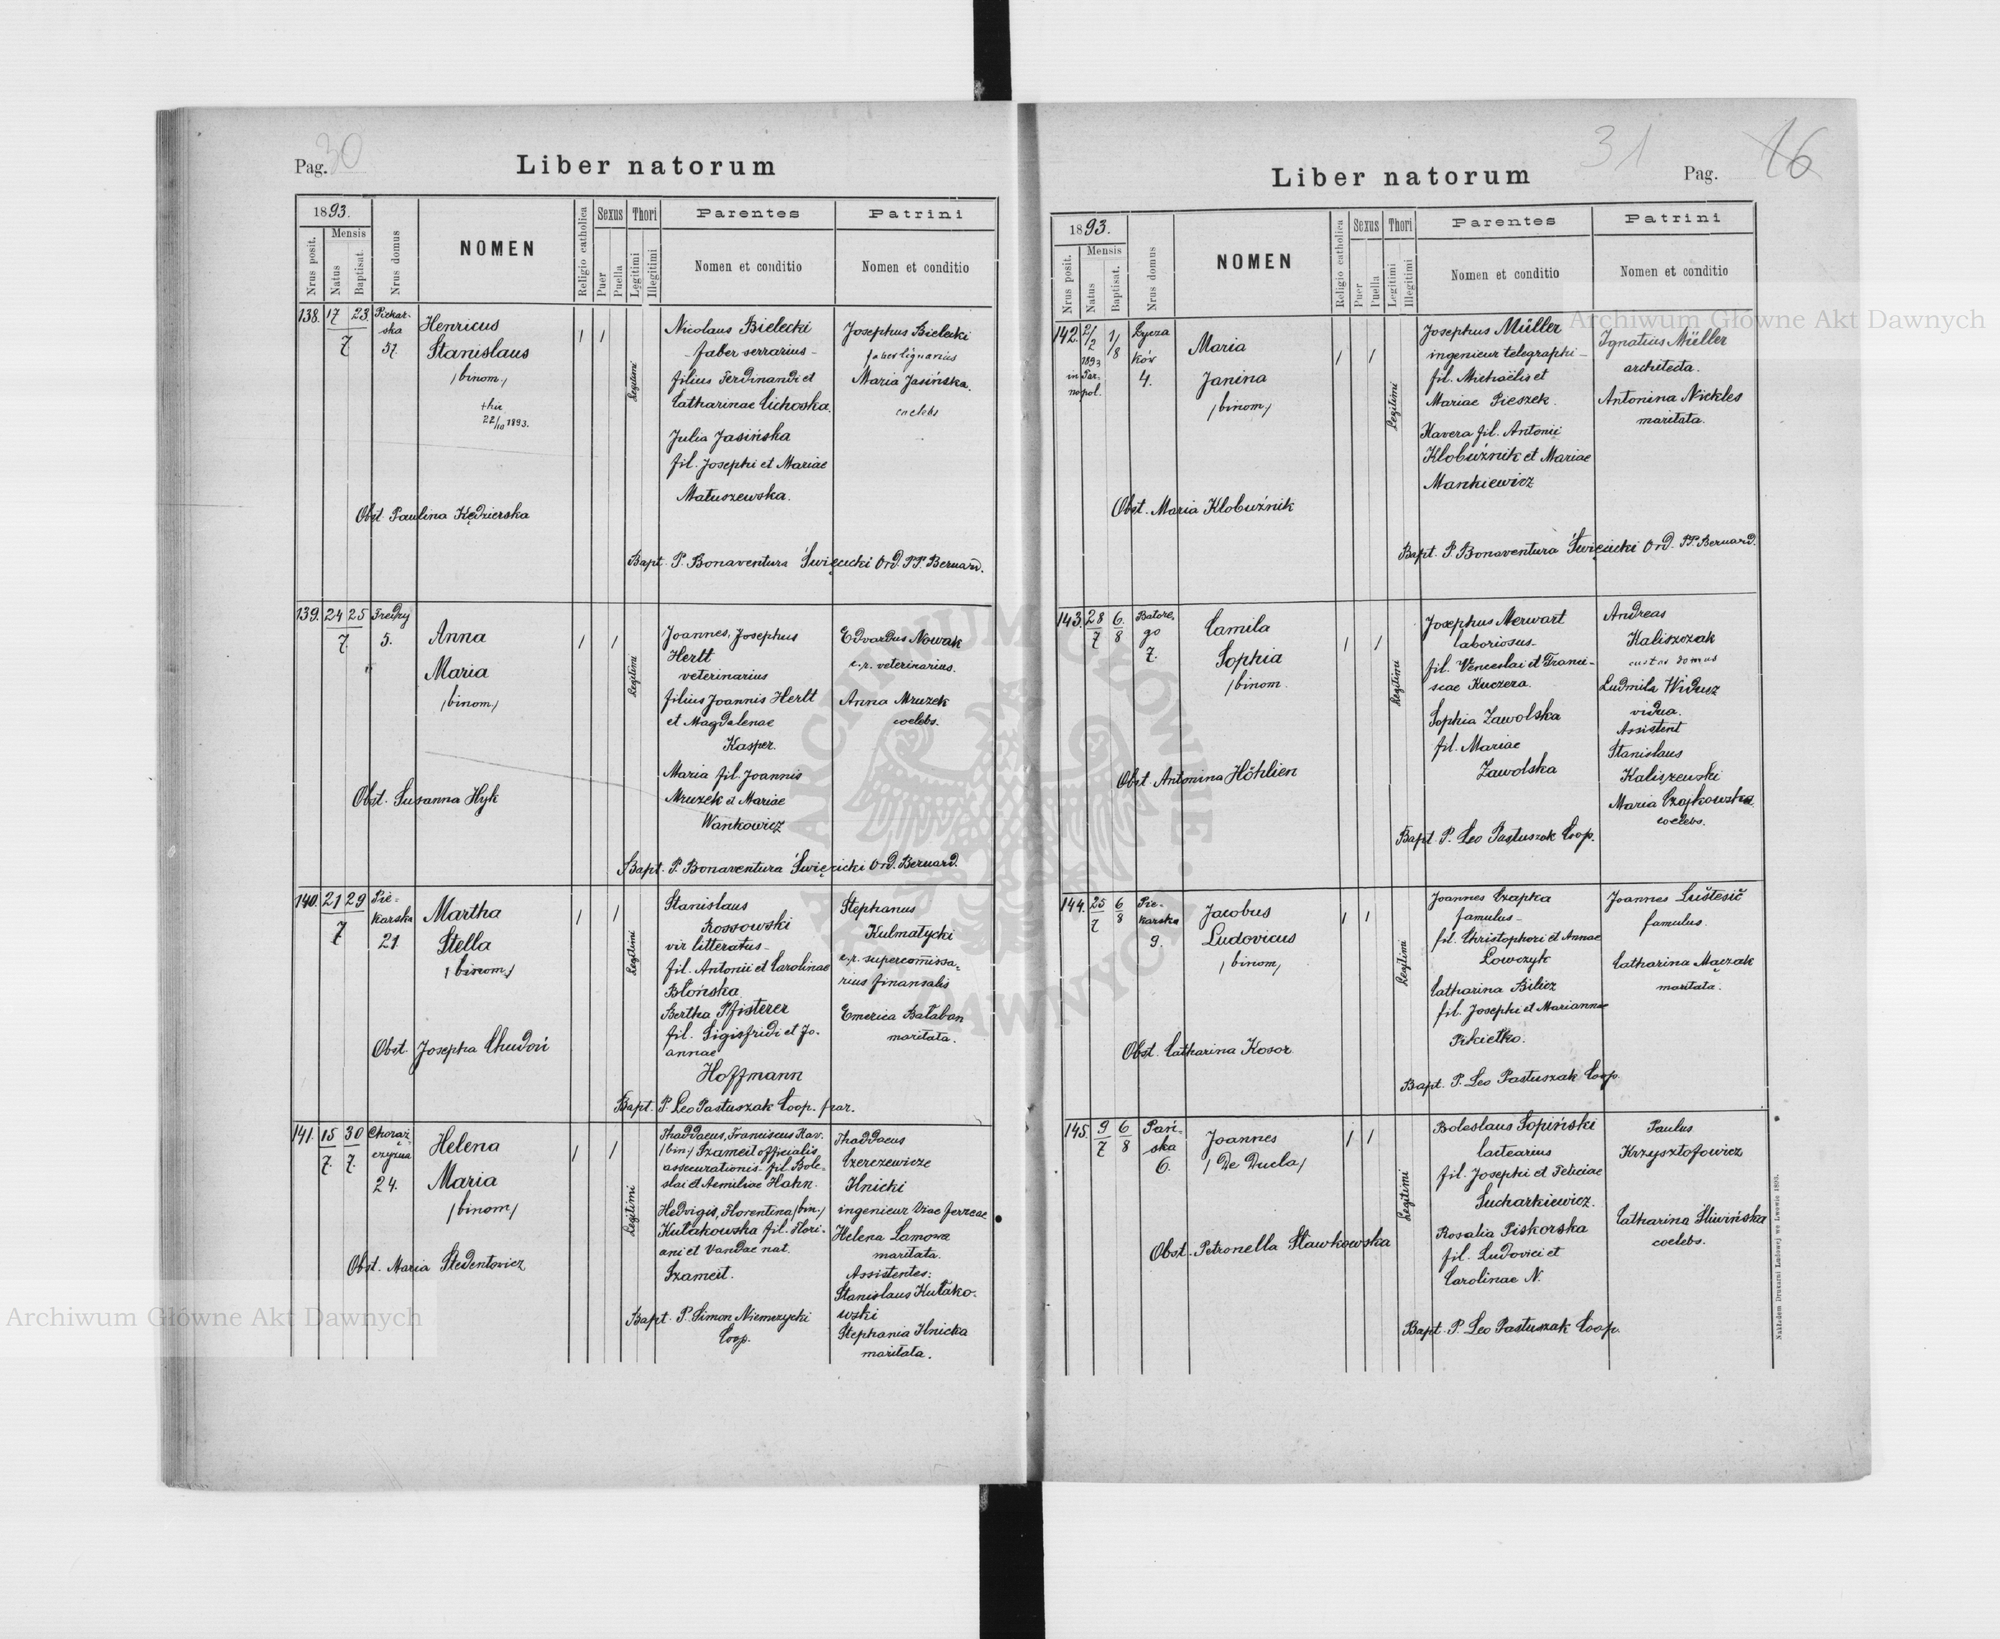 Pag. 30
Liber natorum
1893.
Nrus posit.
Mensis
Natus
Baptisat.
Nrus domus
NOMEN
Religio catholica
Sexus
Puer
Puella
Thori
Legitimi
Illegitimi
Parentes
Nomen et conditio
Patrini
Nomen et conditio
138. 17 23 7
Piekar-
ska
37.
Henricus
Stanislaus
/binom/
22/10 1893.
Obst. Paulina Kędzierska
1 1
Legitimi
Nicolaus Bielecki
faber serrarius-
filius Ferdinandi et
Catharinae Cichoska.
Julia Jasińska
fil. Josephi et Mariae
Matuszewska.
Josephus Bielecki
faber lignarius
Maria Jasińska.
caelebs
Bapt. P. Bonaventura Święcicki Ord. PP. Bernard.
139. 24 25 7
Fredry
5.
Anna
Maria
/binom/
Obst. Susanna Hyk
1 1
Legitimi
Joannes, Josephus
Herlt
veterinarius
filius Joannis Herlt
et Magdalenae
Kasper.
Maria fil. Joannis
Mruzek et Mariae
Wankowicz
Edvardus Nowak
c.r. veterinarius.
Anna Mruzek
coelebs.
Bapt. P. Bonaventura Święcicki Ord. Bernard.
140. 21 29 7
Pie-
karska
21
Martha
Stella
/binom/
Obst. Josepha Chudoń
1 1
Legitimi
Stanislaus
Rossowski
vir litteratus-
fil. Antonii et Carolinae
Błońska
Bertha Pfisterer
fil. Sigisfridi et Jo-
annae
Hoffmann
Stephanus
Kulmatycki
c.r. supercomissa-
rius finansalis
Emerica Bałaban
maritata.
Bapt. P. Leo Pastuszak Coop. par.
141. 15 30 7. 7.
Chorąż-
czyzna
24.
Helena
Maria
/binom/
Obst. Maria Stedentowicz
1 1
Legitimi
Thaddaeus, Franciscus Xav.
/bin/ Szameit officialis
assecurationis fil. Bole-
slai et Aemiliae Hahn.
Hedvigis, Florentina /bin/
Kułakowska fil. Flori-
ani et Vandae nat.
Szameit.
Thaddaeus
Czerczewicze
Ilnicki
ingenieur viae ferreae
Helena Lamowa
maritata.
Assistentes:
Stanislaus Kułako-
wski
Stephania Ilnicka
maritata.
Bapt. P. Simon Niemczycki
Coop.
31 Pag. 16
Liber natorum
1893.
Nrus posit.
Mensis
Natus
Baptisat.
Nrus domus
NOMEN
Religio catholica
Sexus
Puer
Puella
Thori
Legitimi
Illegitimi
Parentes
Nomen et conditio
Patrini
Nomen et conditio
142. 2/2 1893 in Tar-
nopol.
1/8
Łycza
ków
4.
Maria
Janina
/binom/
Obst. Maria Klobuźnik
1 1
Legitimi
Josephus Müller
ingenieur telegraphi-
fil. Michaëlis et
Mariae Pieszek.
Xavera fil. Antonii
Klobuźnik et Mariae
Mankiewicz
Ignatius Müller
architecta.
Antonina Nickles
maritata.
Bapt. P. Bonaventura Święcicki Ord. PP. Bernard.
143. 28 6. 7 8
Batore-
go
7.
Camila
Sophia
/binom
Obst. Antonina Höhlien
1 1
Legitimi
Josephus Merwart
laboriosus.
fil. Venceslai et Franci-
scae Kuczera.
Sophia Zawolska
fil. Mariae
Zawolska
Andreas
Kaliszczak
custos domus
Ludmila Widusz
vidua.
Assistent
Stanislaus
Kaliszewski
Maria Czajkowska
coelebs.
Bapt. P. Leo Pastuszak Coop.
144. 25 6 7 8
Pie-
karska
9.
Jacobus
Ludovicus
/binom/
Obst. Catharina Kosor
1 1
Legitimi
Joannes Czapka
famulus-
fil. Christophori et Annae
Lowczyk
Catharina Bilicz
fil. Josephi et Mariannae
Pikietko.
Joannes Luštesič
famulus.
Catharina Mączak
maritata.
Bapt. P. Leo Pastuszak Coop.
145. 9 6 7 8
Pań-
ska
6.
Joannes
/De Ducla/
Obst. Petronella Sławkowska
1 1
Legitimi
Boleslaus Sopiński
lactearius
fil. Josephi et Feliciae
Sucharkiewicz.
Rosalia Piskorska
fil. Ludovici et
Carolinae N.
Paulus
Krzysztofowicz
Catharina Śliwińska
coelebs.
Bapt. P. Leo Pastuszak Coop.
Nakładem Drukarni Ludowej we Lwowie 1890.
Archiwum Główne Akt Dawnych
Archiwum Główne Akt Dawnych
ARCHIWUM GŁÓWNE AKT DAWNYCH